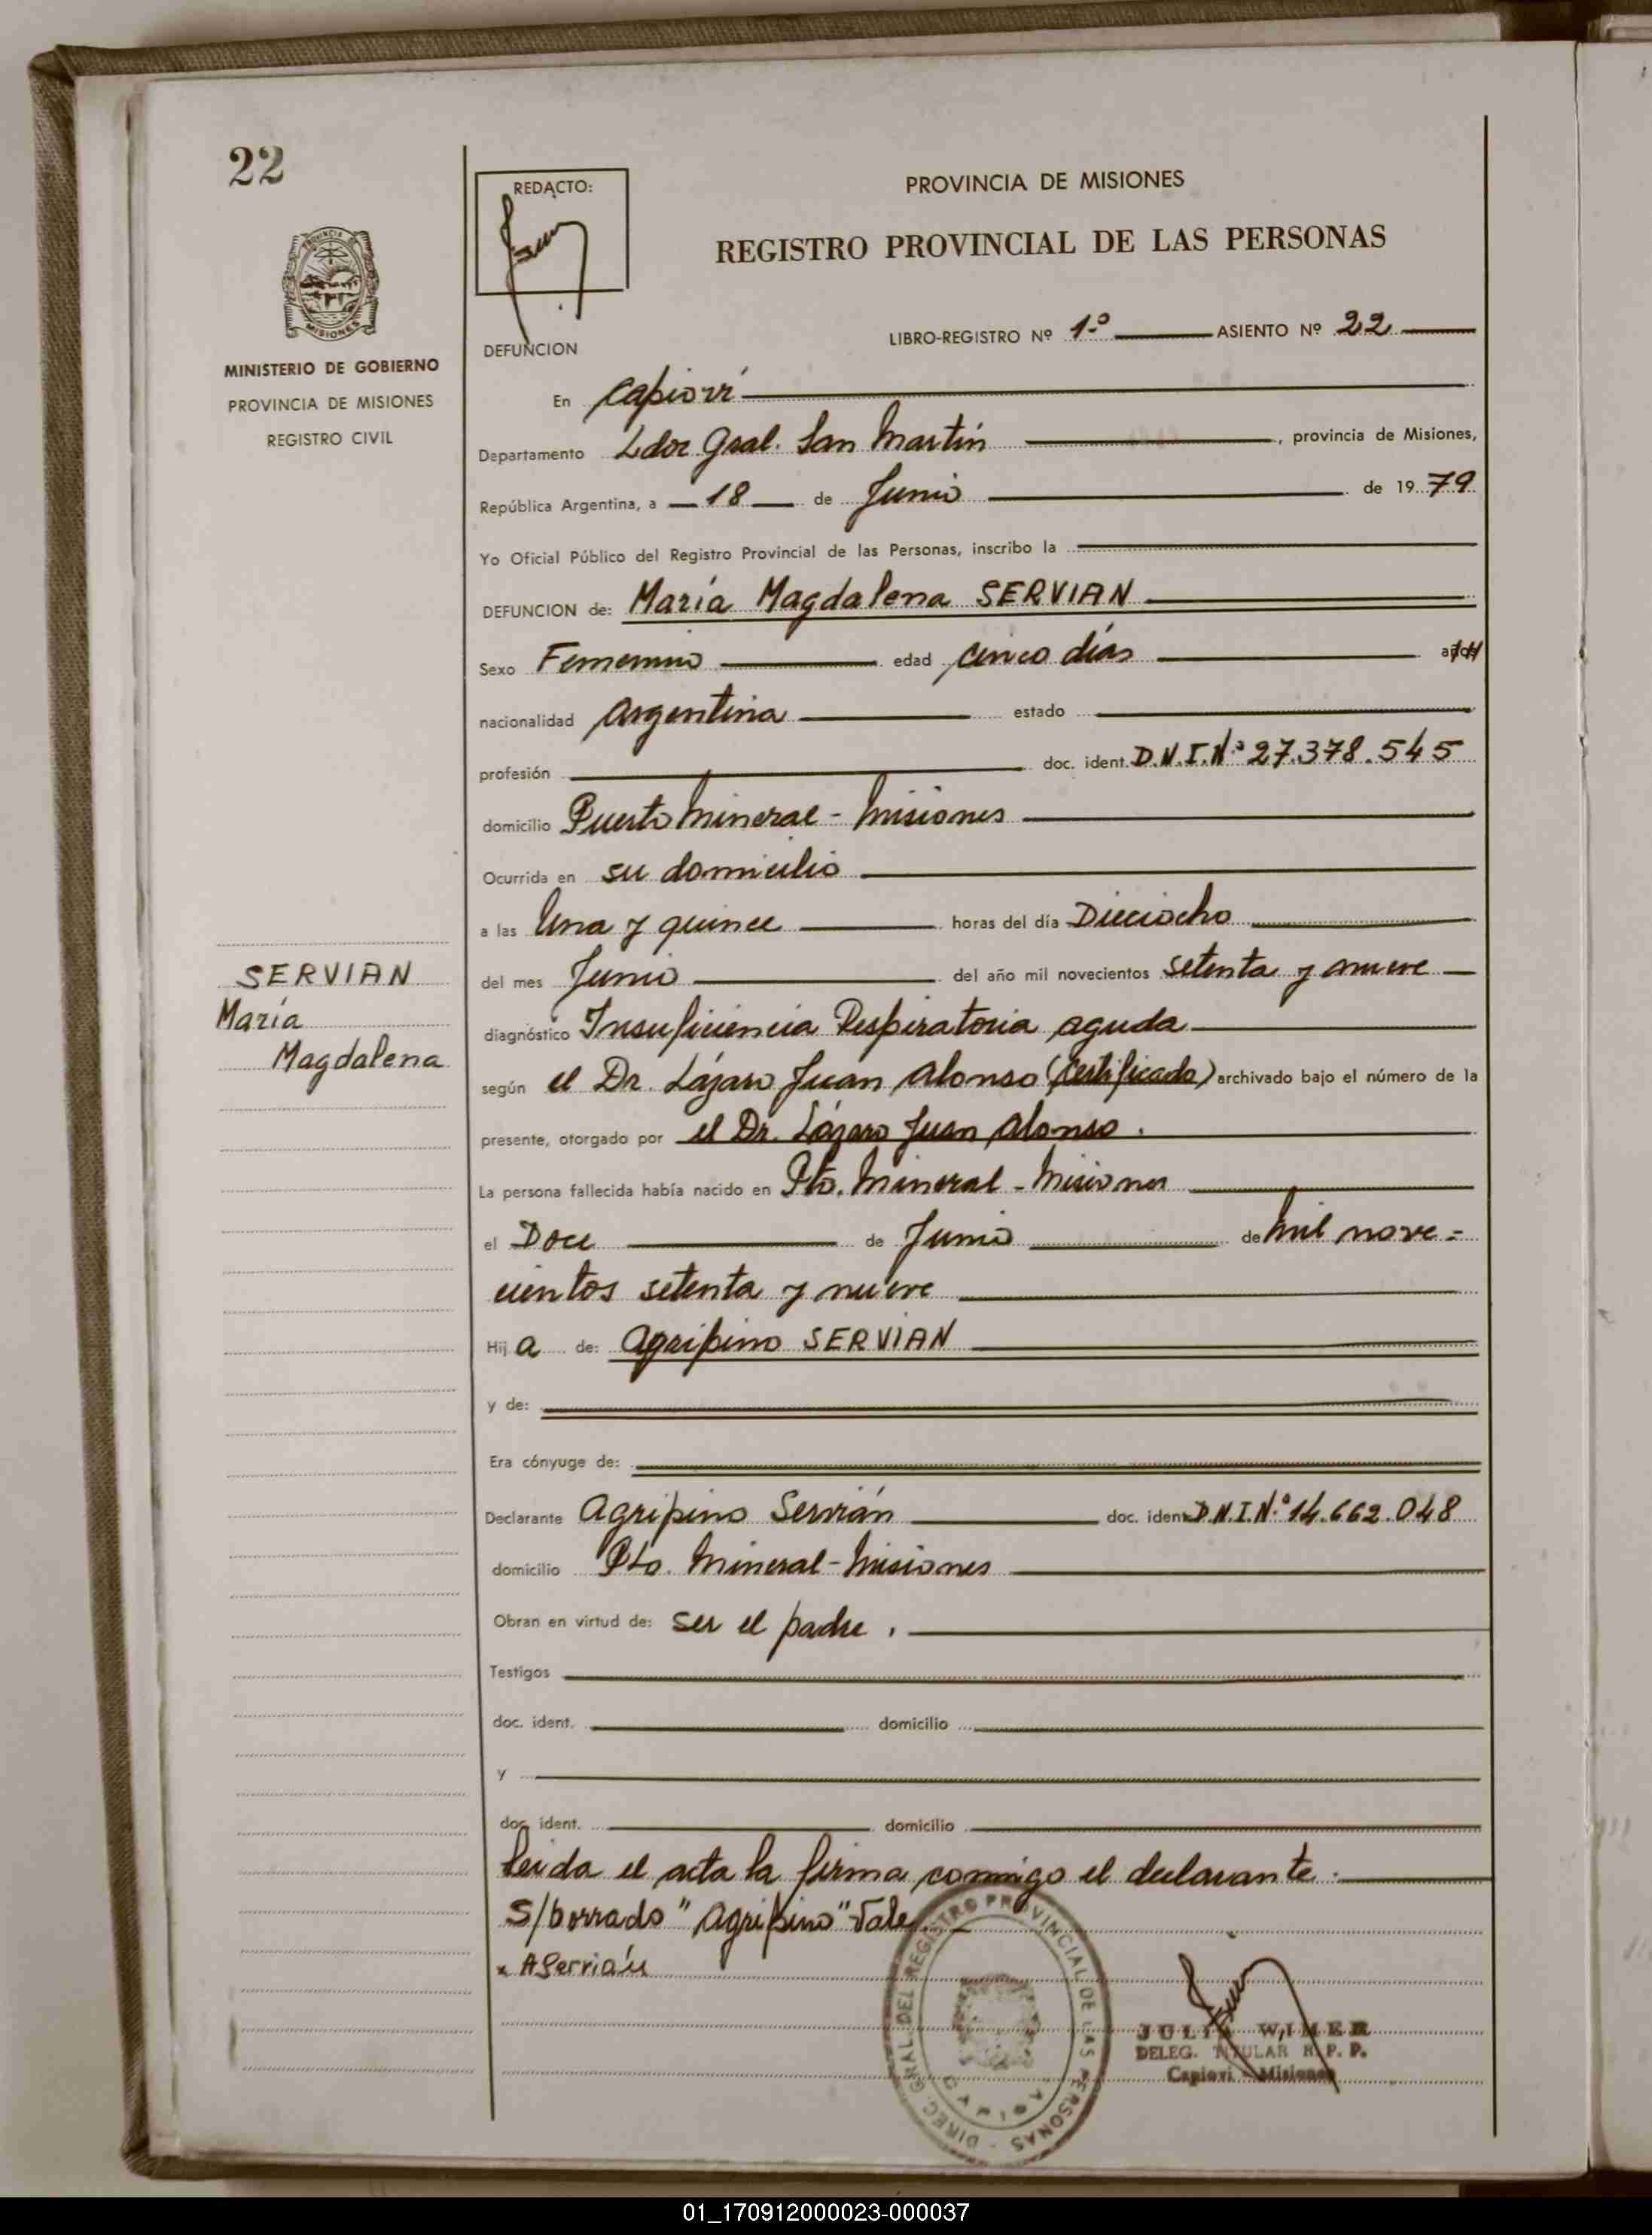 22
REDACTO:
PROVINCIA DE MISIONES
REGISTRO PROVINCIAL DE LAS PERSONAS
MISIONES
MINISTERIO DE GOBIERNO
PROVINCIA DE MISIONES
REGISTRO CIVIL
LIBRO-REGISTRO Nº 1º ASIENTO Nº 22
DEFUNCION
En Capioví
Departamento Ldor Gral. San Martín, provincia de Misiones,
República Argentina, a 18 de Junio de 1979
Yo Oficial Público del Registro Provincial de las Personas, inscribo la
DEFUNCION de: María Magdalena SERVIAN
Sexo Femenino edad cinco días años
nacionalidad Argentina estado
profesión doc. ident. D.N.I.Nº 27.378.545
domicilio Puerto Mineral - Misiones
Ocurrida en su domicilio
a las Una y quince horas del día Dieciocho
SERVIAN
María
Magdalena
del mes Junio del año mil novecientos setenta y nueve
diagnóstico Insuficiencia Respiratoria aguda
según el Dr. Lázaro Juan Alonso (Certificado) archivado bajo el número de la
presente, otorgado por el Dr. Lázaro Juan Alonso.
La persona fallecida había nacido en Pto. Mineral - Misiones
el Doce de Junio de mil nove=
cientos setenta y nueve
Hij a de: Agripino SERVIAN
y de:
Era cónyuge de:
Declarante Agripino Servián doc. ident. D.N.I.Nº 14.662.048
domicilio Pto. Mineral - Misiones
Obran en virtud de: ser el padre.
Testigos
doc. ident. domicilio
y
doc. ident. domicilio
Leida el acta la firma conmigo el declarante.
S/borrado "Agripino" Vale.
x AServián
DIREC. GRAL. DEL REGISTRO PROVINCIAL DE LAS PERSONAS
CAPIOVI
JULIA WIMER
DELEG. TITULAR R. P. P.
Capioví - Misiones
01_170912000023-000037